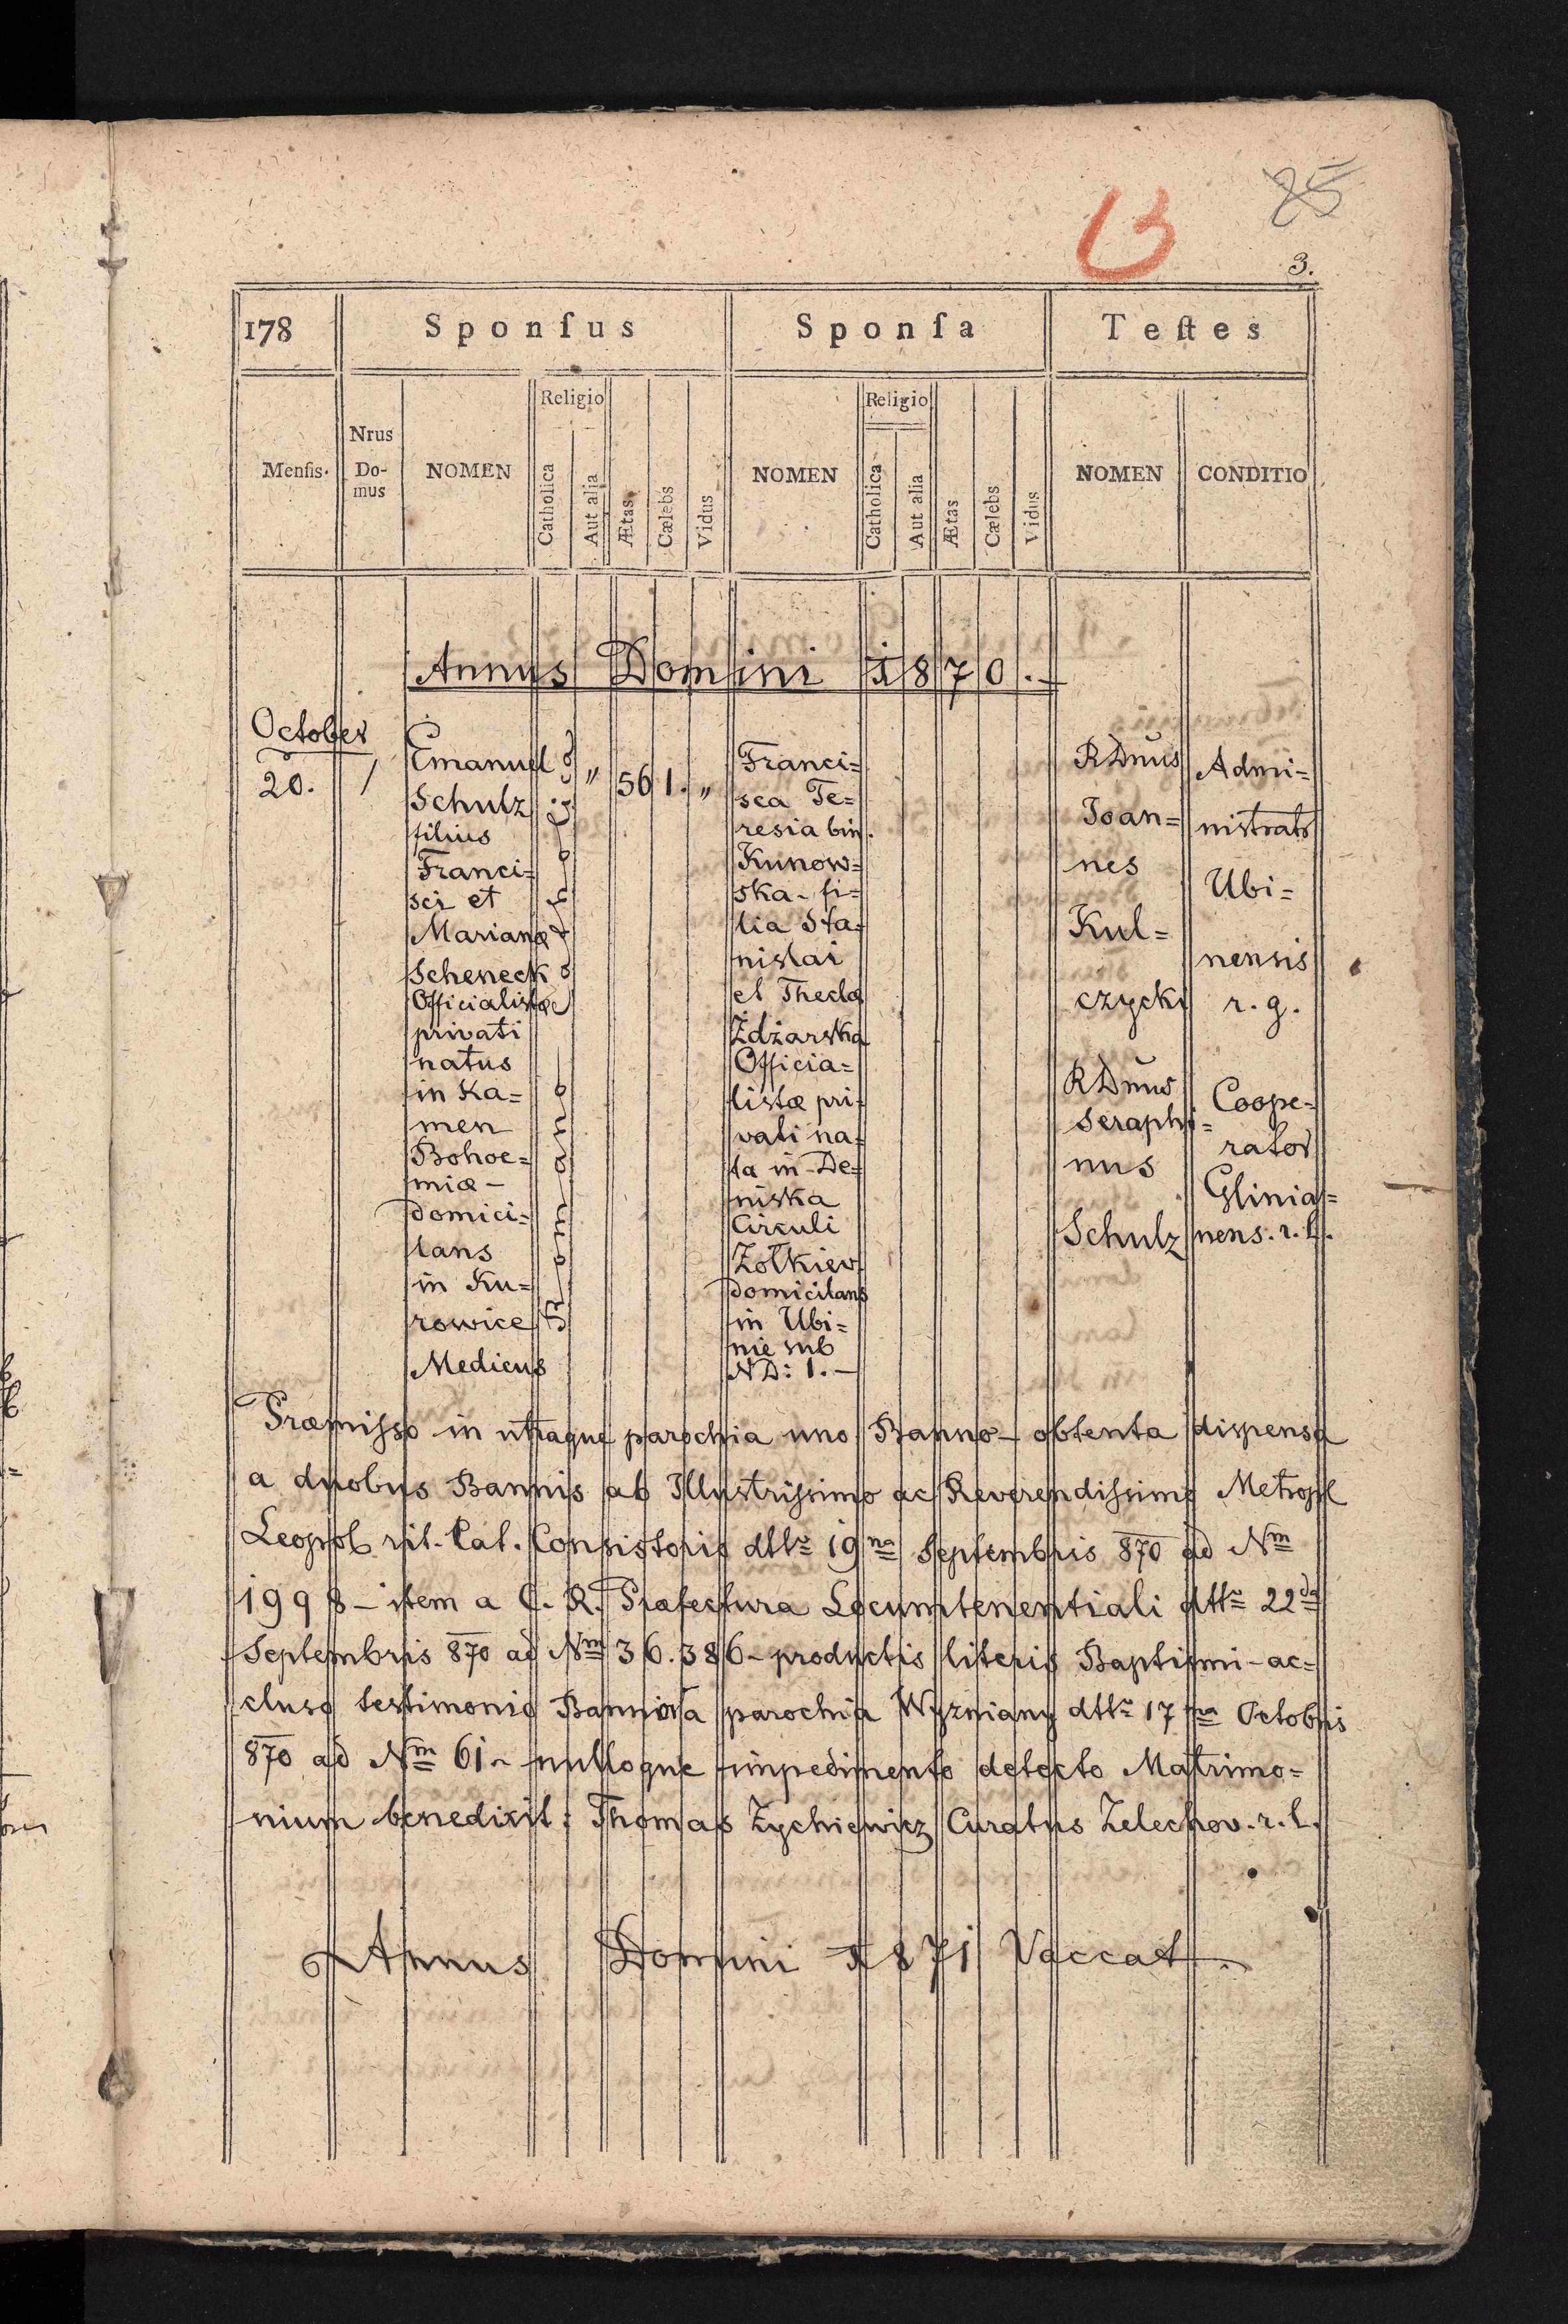 85
13
3.
178 Sponſus Sponſa Teſtes
Menſis. Nrus Do-mus NOMEN Religio Catholica Aut alia Ætas Cælebs Vidus NOMEN Religio Catholica Aut alia Ætas Cælebs Vidus NOMEN CONDITIO
Annus Domini 1870.–
October
20.
1
Emanuel
Schulz
filius
Franci=
sci et
Marianæ
Scheneck
Officialistæ
privati
natus
in Ka=
men
Bohoe=
miæ –
domici=
lans
in Ku=
rowice
Medicus
Romano Catholica
"
56
1.
"
Franci=
sca Te=
resia bin.
Kunow=
ska - fi=
lia Sta=
nislai
et Theclæ
Zdżarska
Officia=
listæ pri=
vati na=
ta in De=
niska
Circuli
Żołkiew
domicilans
in Ubi=
nie sub
ND: 1.–
RDnus
Joan=
nes
Kul=
czycki
Admi=
nistrator
Ubi=
nensis
r. g.
RDnus
Seraphi=
nus
Schulz
Coope=
rator
Glinia=
nens. r. l.
Præmisso in utraque parochia uno Banno – obtenta dispensa
a duobus Bannis ab Illustrissimo ac Reverendissimo Metropl
Leopol rit. Lat. Consistorio dtto 19na Septembris 870 ad Nm
1998 – item a C. R. Præfectura Locumtenentiali dtto 22da
Septembris 870 ad Nm 36.386 – productis literis Baptismi – ac=
cluso testimonio Bannor a parochia Wyzniany dtto 17ma Octobris
870 ad Nm 61 – nulloque impedimento detecto Matrimo=
nium benedixit: Thomas Zychiewicz Curatus Zelechov. r. l.
Annus Domini 1871 Vaccat.